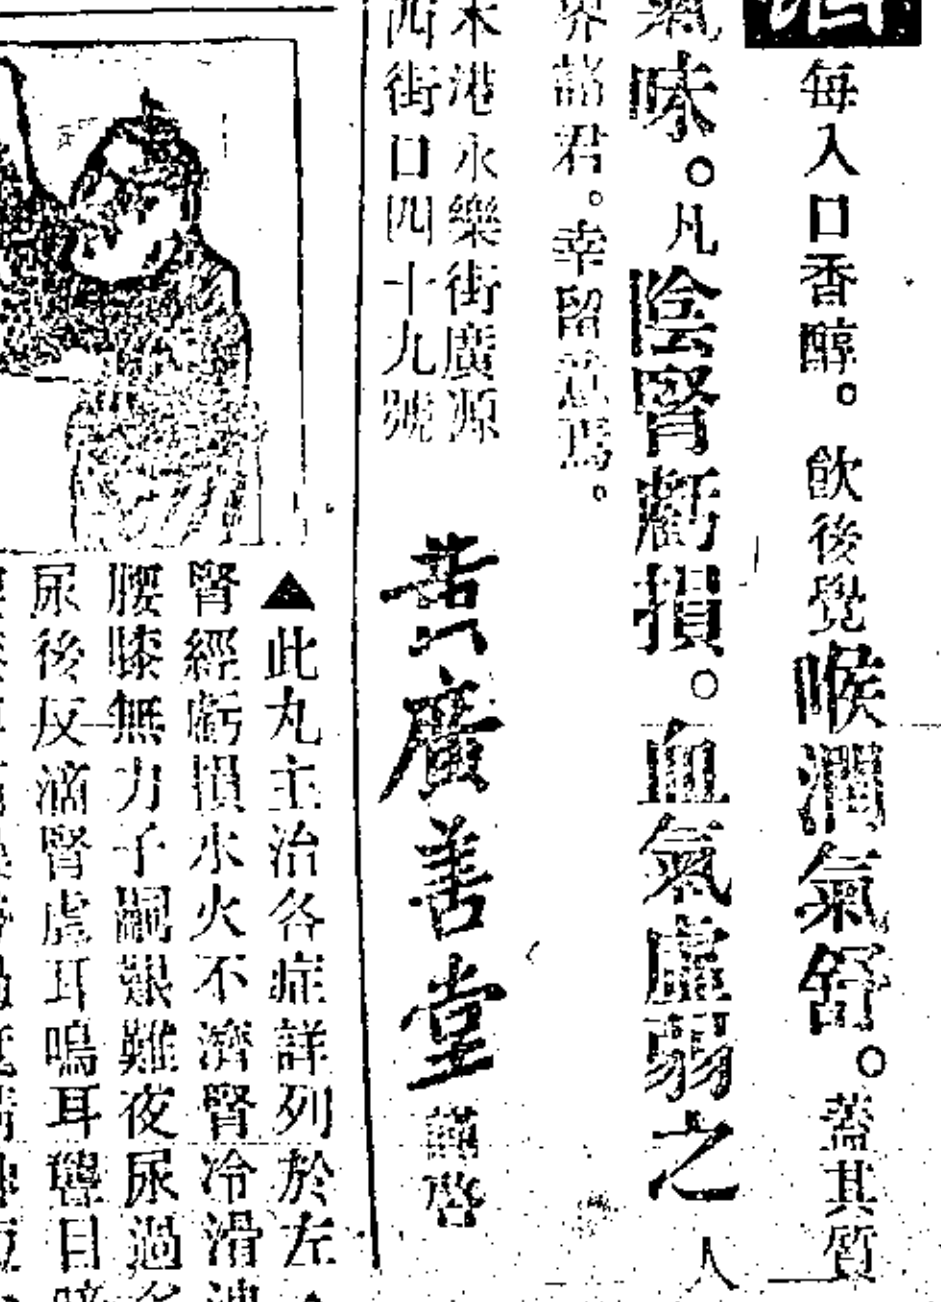 酒
每入口香醇。飲後覺喉潤氣舒。蓋其質
氣味。凡陰腎虧損。血氣虛弱之人
界諸君。幸留意焉。
港永樂街廣源
西街口四十九號
黄廣善堂謹啓
▲此丸主治各症詳列於左
腎經虧損水火不濟腎冷滑
腰膝無力子嗣艱難夜尿過多
尿後反滴腎虛耳鳴耳聾目暗